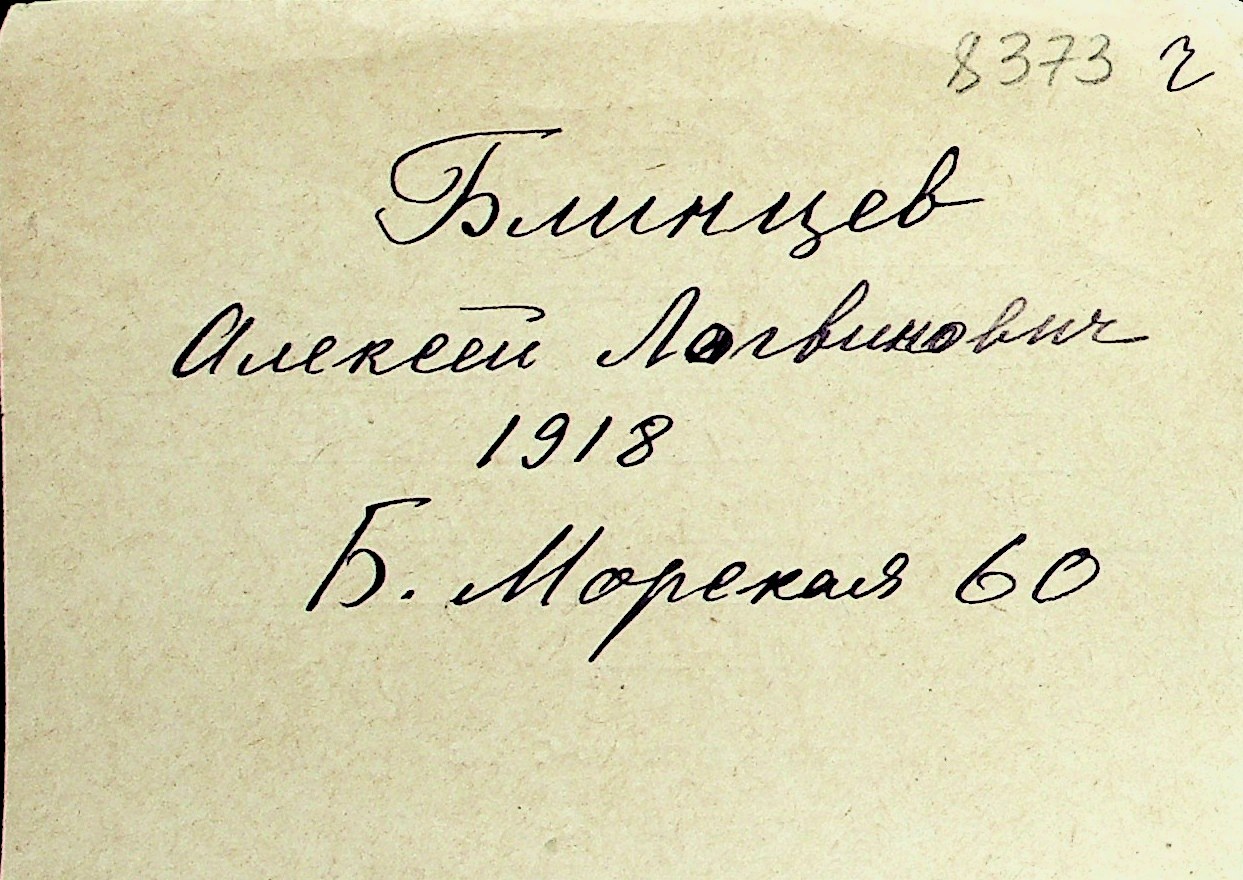 8373 г
Блинцев
Алексей Логвинович
1918
Б. Морская 60